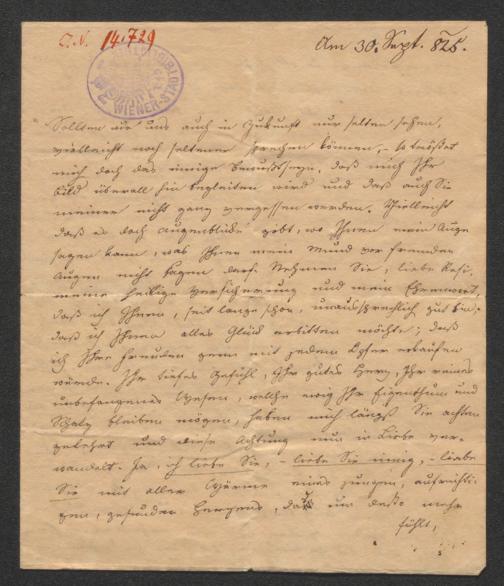 I.N. 14.729
Am 30. Sept. 825.
WIENER STADTBIBLIOTHEK
Sollten wir uns auch in Zukunft nur selten sehen,
vielleicht noch seltener sprechen können, so tröstet
mich doch das einige Bewußtseyn, daß mich Ihr
Bild überall hin begleiten wird und daß auch Sie
meiner nicht ganz vergessen werden. Vielleicht
daß es doch Augenblicke gibt, wo Ihnen mein Auge
sagen kann, was Ihnen mein Mund vor fremden
Augen nicht sagen darf. Nehmen Sie, liebe
meine heilige Versicherung und mein Ehrenwort,
daß ich Ihnen, seit lange schon, unaussprechlich gut bin,
daß ich Ihnen alles Glück erbitten möchte; daß
ich Ihre Freuden gern mit jedem Opfer erkaufen
würde. Ihr tiefes Gefühl, Ihr gutes Herz, Ihr reines
unbefangenes Wesen, welche ewig Ihr Eigenthum und
Schatz bleiben mögen, haben mich längst Sie achten
gelehrt und diese Achtung nun in Liebe ver-
wandelt. Ja, ich liebe Sie, – liebe Sie innig, – liebe
Sie mit aller Wärme eines jungen, aufrichti-
gen, gesunden Herzens, das um desto mehr
fühlt,